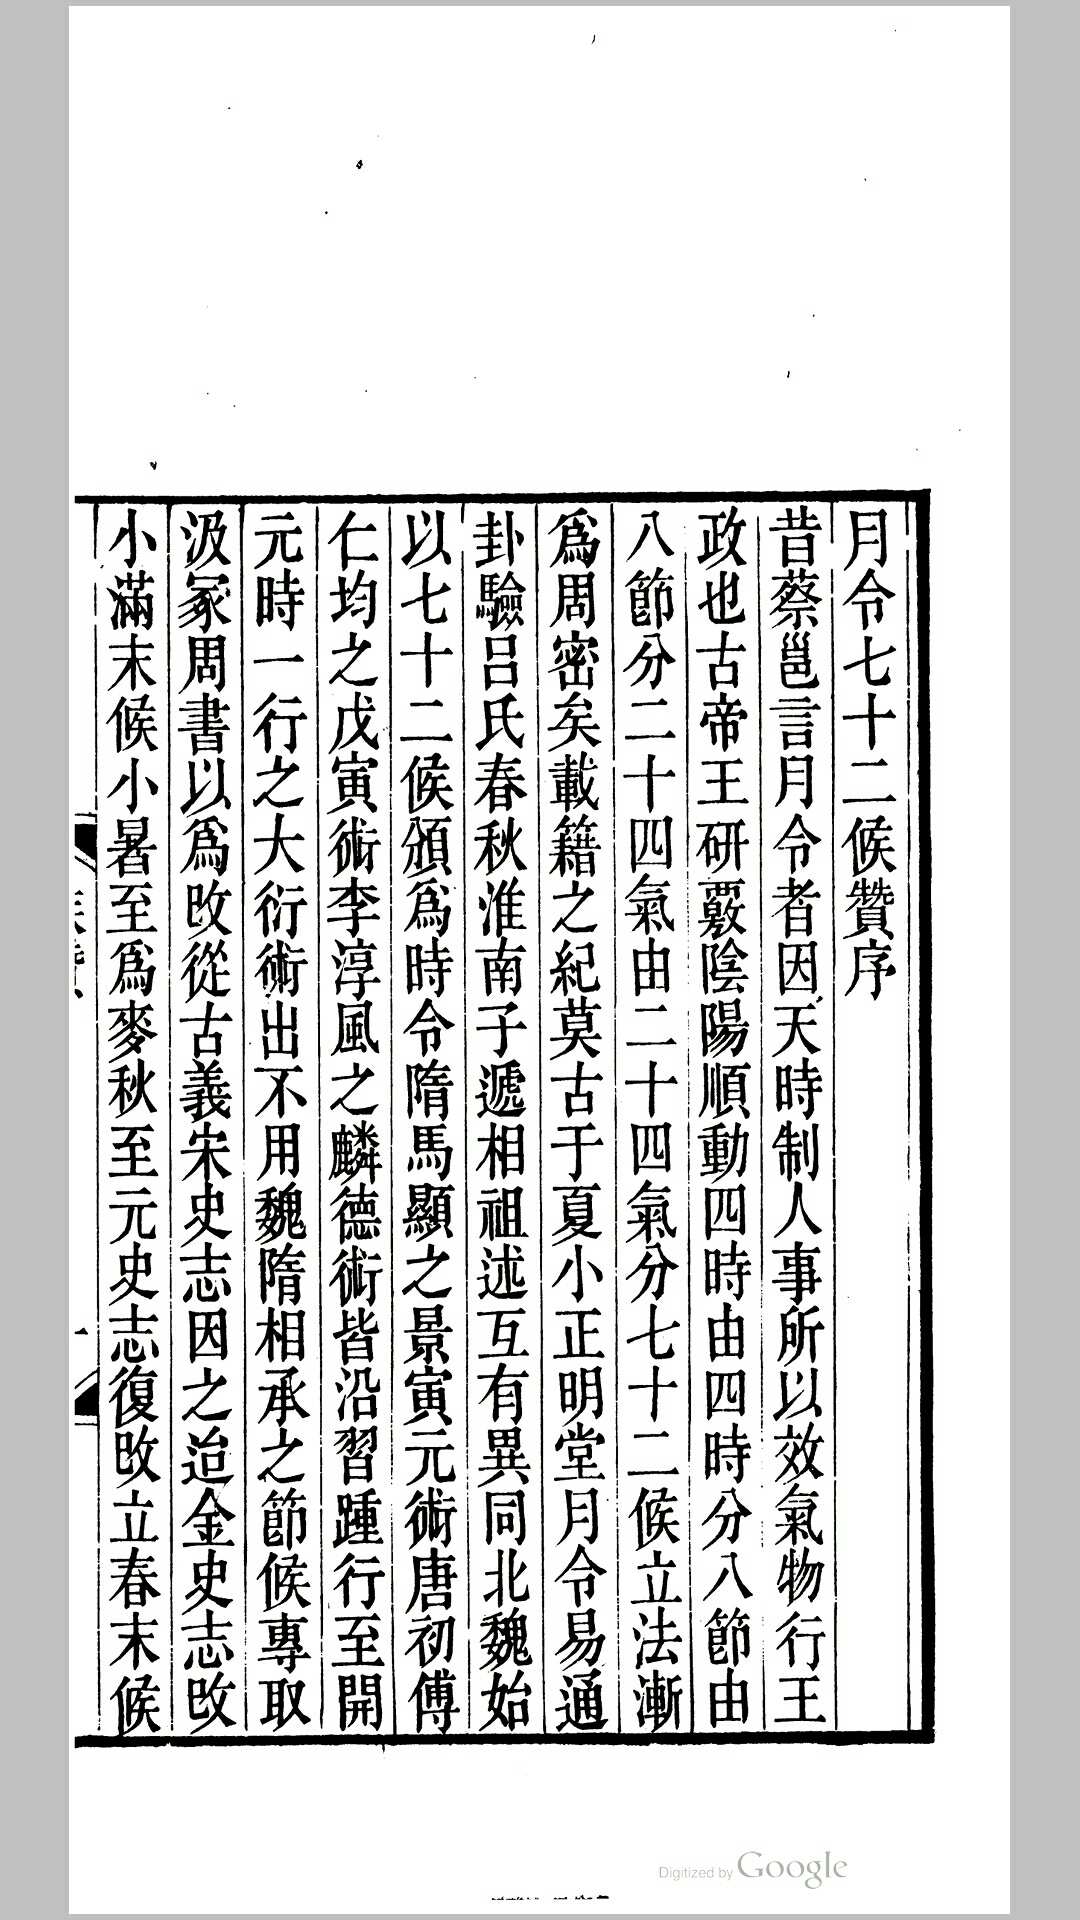 月令七十二候贊序
昔蔡邕言月令者因天時制人事所以效氣物行王
政也古帝王研覈陰陽順動四時由四時分八節由
八節分二十四氣由二十四氣分七十二候立法漸
爲周密矣載籍之紀莫古于夏小正明堂月令易通
卦驗呂氏春秋淮南子遞相祖述互有異同北魏始
以七十二候頒爲時令隋馬顯之景寅元術唐初傅
仁均之戊寅術李淳風之麟德術皆沿習踵行至開
元時一行之大衍術出不用魏隋相承之節候專取
汲冢周書以爲攺從古義宋史志因之迨金史志攺
小滿末候小暑至爲麥秋至元史志復攺立春末候
Digitized by Google